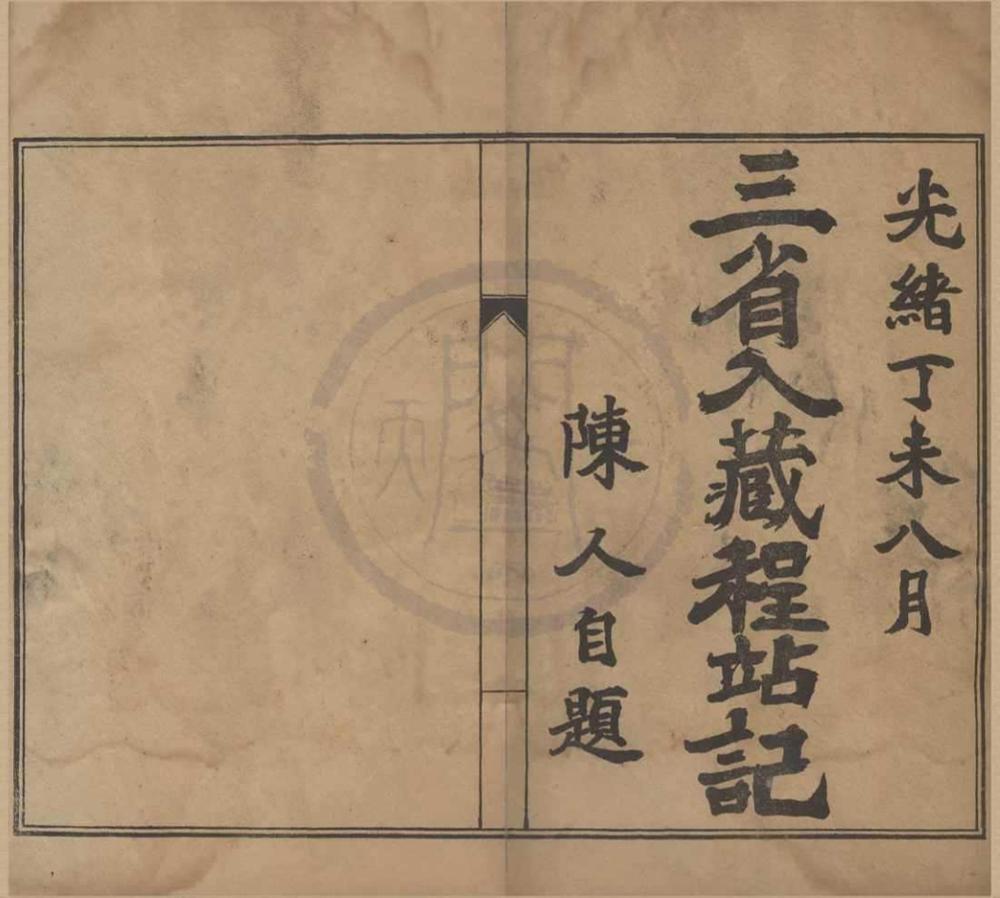 光緒丁未八月
三省入藏程站記
陳人自題